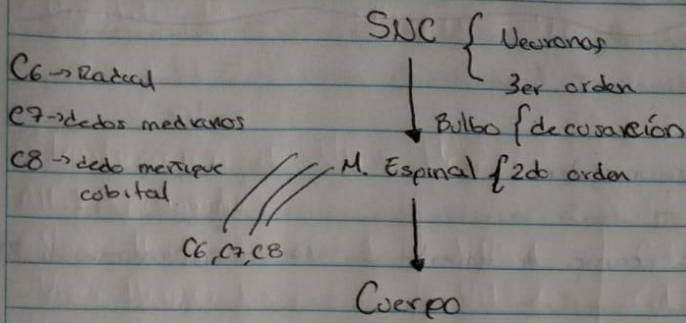 SNC { Neuronas
3er orden
C6 → Radial
C7 → dedos medianos
C8 → dedo meñique
cobital
Bulbo { decusación
M. Espinal { 2do orden
C6, C7, C8
Cuerpo